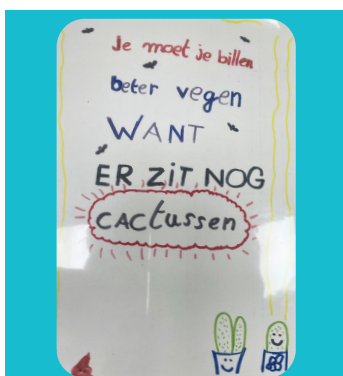 Je moet je billen
beter vegen
WANT
ER ZiT NOG
CACtussen